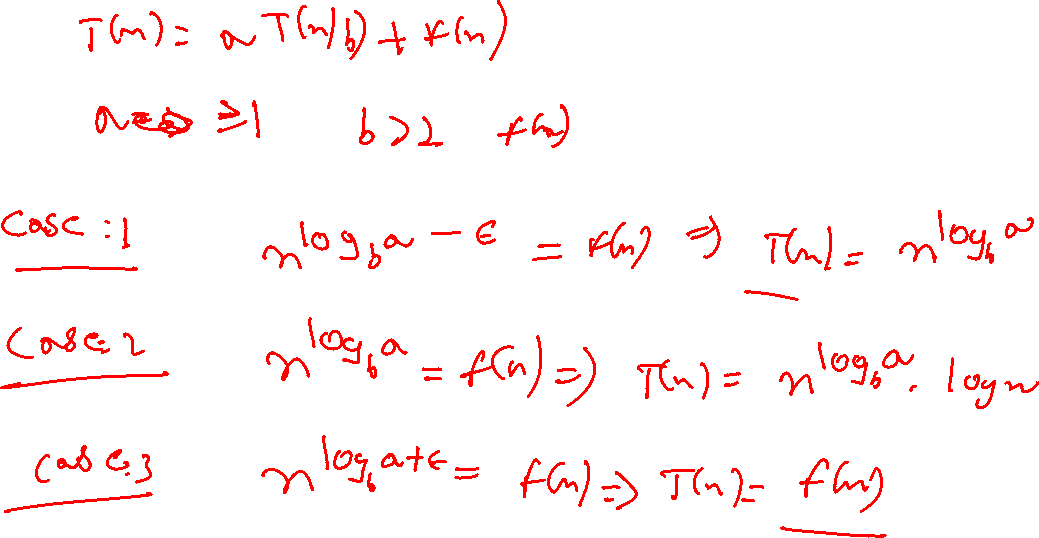 T(n) = a T(n/b) + f(n)
a ≥1 b>2 f(n)
Case :1 n^{log_b a - ε} = f(n) ⇒ T(n) = n^{log_b a}
Case:2 n^{log_b a} = f(n) ⇒ T(n) = n^{log_b a} . log n
Case:3 n^{log_b a+ε} = f(n) ⇒ T(n) = f(n)